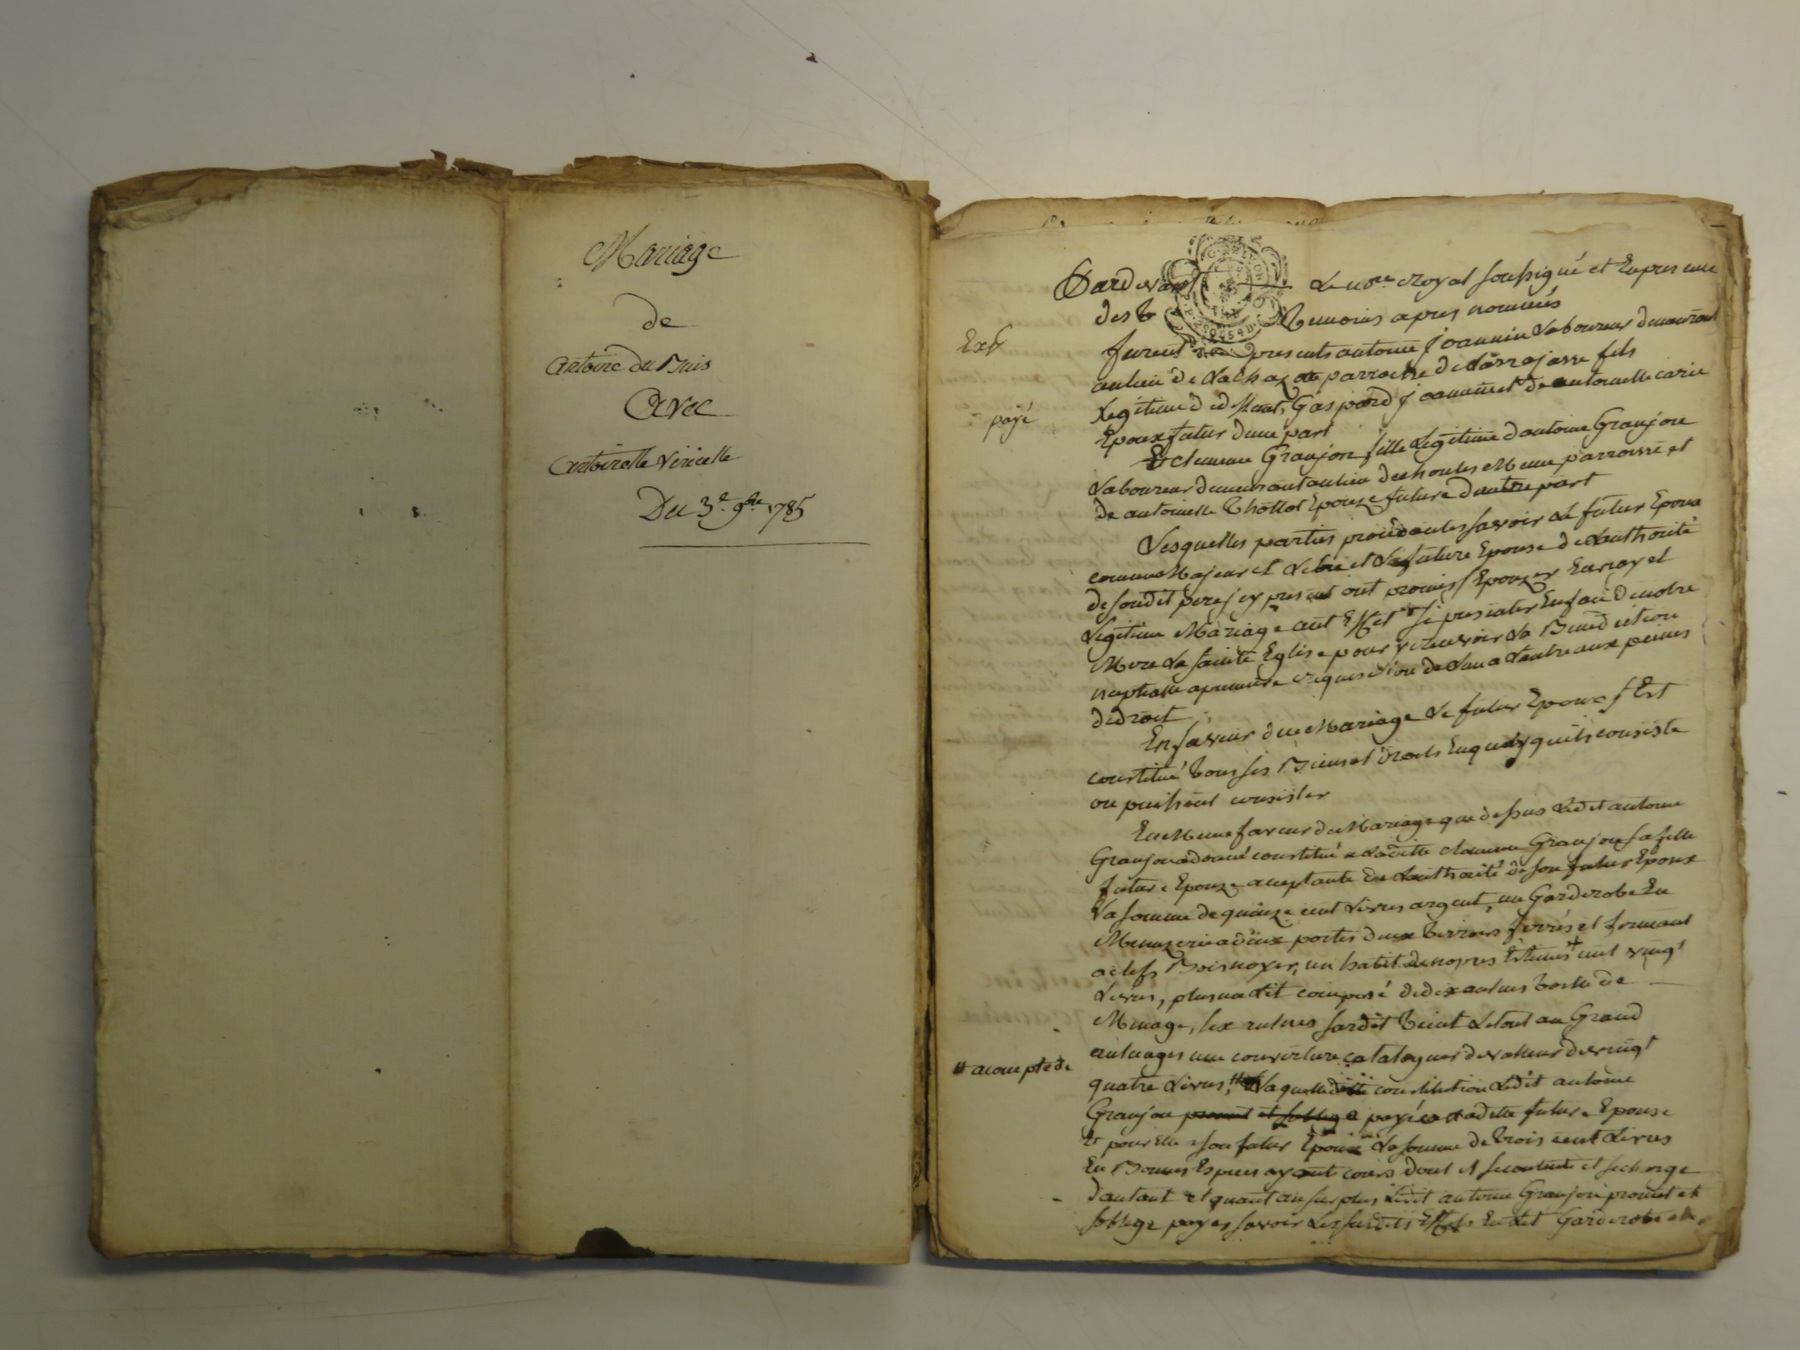 Mariage
de
Antoine du Buis
Avec
Antoinette Viricelle
Du 3e. 9bre 1785
Pardevant Le nore Royal soussigné et En presence
des temoins apres nommés
Exp
furent presents antoine Joannin Laboureur demeurant
au lieu de Lachaz parroisse de Larrajasse fils
payé
Legitime de def Gaspard Joannin et de antoinette carie
Epoux futur dune part
Et clemence Granjon fille Legitime dantoine Granjon
Laboureur demeurant au lieu des houles meme parroisse et
de antoinette Thollot Epouze future dautre part
Lesquelles parties procedantes savoir Le futur Epoux
comme Majeur et Libre et La future Epouse de Lauthorité
de sondit pere icy present ont promis s'Epouzer En vray et
Legitime Mariage aut Effet se presenter En face de notre
Mere La sainte Eglise pour y recevoir La Benediction
nuptialle a premiere requisition de Lun a Lautre aux peines
de droit
En faveur duq Mariage Le futur Epoux s'Est
constitué tous ses Biens et droits En quoy qu'ils consiste
ou puissent consister
En Meme faveur du Mariage que dessus Ledit antoine
Granjon a donné constitué a Ladite clemence Granjon sa fille
future Epouze acceptante de Lauthorité de son futur Epoux
La somme de quinze cent Livres argent, un Garderobe En
Menuzerie a deux portes deux tirroirs ferrés et fermant
a clefs Bois noyer, un habit de nopces Estimés cent vingt
Livres, plus un Lit composé de dix aulnes toille de
Menage, six aulnes sardit teint Letout au Grand
aulnages une couverture catalogne de valleur de vingt
# acompte de
quatre Livres, # Laquelle constitution Ledit antoine
Granjon promet et soblige a payé a Ladite future Epouse
Et pour Elle a son futur Epoux La somme de trois cent Livres
En Bonnes Especes ayant cours dont il se contente et se charge
dautant et quant au surplus Ledit antoine Granjon promet et
soblige payer savoir Les susdits Effets En Lit Garderobe et